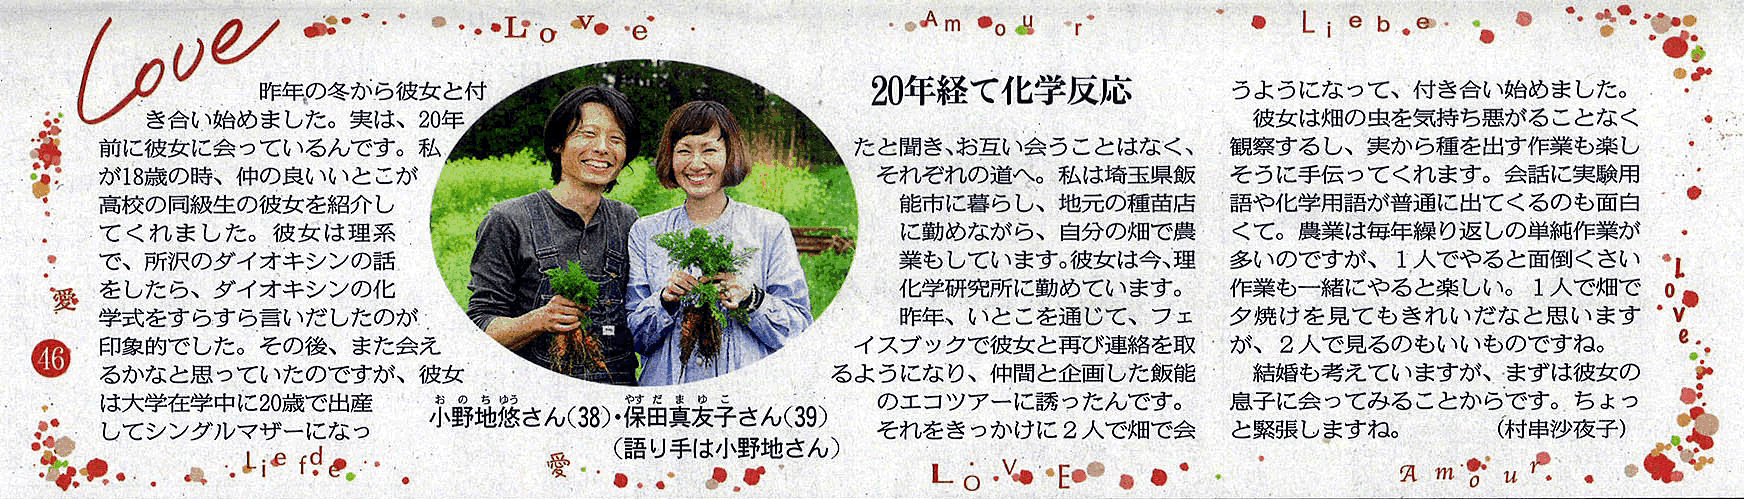 Love
Love
Amour
Liebe
昨年の冬から彼女と付
き合い始めました。実は、20年
前に彼女に会っているんです。私
が18歳の時、仲の良いいとこが
高校の同級生の彼女を紹介し
てくれました。彼女は理系
で、所沢のダイオキシンの話
をしたら、ダイオキシンの化
学式をすらすら言いだしたのが
印象的でした。その後、また会え
るかなと思っていたのですが、彼女
は大学在学中に20歳で出産
してシングルマザーになっ
小野地悠さん(38)・保田真友子さん(39)
おのちゆう
やすだまゆこ
(語り手は小野地さん)
20年経て化学反応
たと聞き、お互い会うことはなく、
それぞれの道へ。私は埼玉県飯
能市に暮らし、地元の種苗店
に勤めながら、自分の畑で農
業もしています。彼女は今、理
化学研究所に勤めています。
昨年、いとこを通じて、フェ
イスブックで彼女と再び連絡を取
るようになり、仲間と企画した飯能
のエコツアーに誘ったんです。
それをきっかけに2人で畑で会
うようになって、付き合い始めました。
彼女は畑の虫を気持ち悪がることなく
観察するし、実から種を出す作業も楽し
そうに手伝ってくれます。会話に実験用
語や化学用語が普通に出てくるのも面白
くて。農業は毎年繰り返しの単純作業が
多いのですが、1人でやると面倒くさい
作業も一緒にやると楽しい。1人で畑で
夕焼けを見てもきれいだなと思います
が、2人で見るのもいいものですね。
結婚も考えていますが、まずは彼女の
息子に会ってみることからです。ちょっ
と緊張しますね。 (村串沙夜子)
愛
46
Love
Liefde
愛
LOVE
Amour